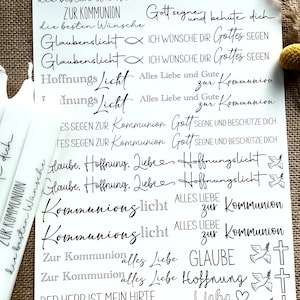 ZUR KOMMUNION
die besten Wünsche
Gott segne und behüte dich
Glaubenslicht ICH WÜNSCHE DIR Gottes SEGEN
Glaubenslicht ICH WÜNSCHE DIR Gottes SEGEN
Hoffnungs Licht Alles Liebe und Gute zur Kommunion
Licht Alles Liebe und Gute zur Kommunion
SEGEN ZUR Kommunion Gott SEGNE UND BESCHÜTZE DICH
ES SEGEN ZUR Kommunion Gott SEGNE UND BESCHÜTZE DICH
Glaube, Hoffnung, Liebe Hoffnungslicht
Glaube, Hoffnung, Liebe Hoffnungslicht
Kommunionslicht ALLES LIEBE zur Kommunion
Kommunionslicht ALLES LIEBE zur Kommunion
Zur Kommunion alles Liebe GLAUBE
Zur Kommunion alles Liebe Hoffnung
DER HERR IST MEIN HIRTE Liebe
dich
ZUR KOMMUNION
die besten Wünsche